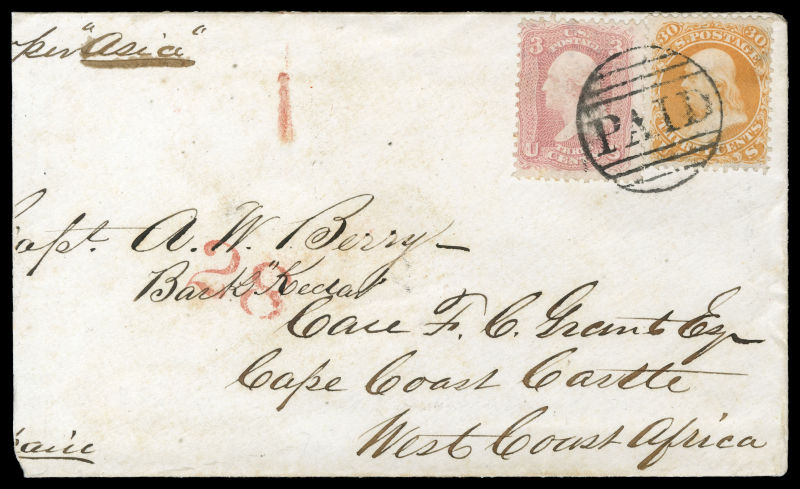 per "Asia"
3 U.S. POSTAGE 3
THREE CENTS
U
30 U.S. POSTAGE 30
THIRTY CENTS
S
PAID
Capt. A. W. Berry
28
Bark "Kedar"
Care F. C. Grant Esq
Cape Coast Castle
West Coast Africa